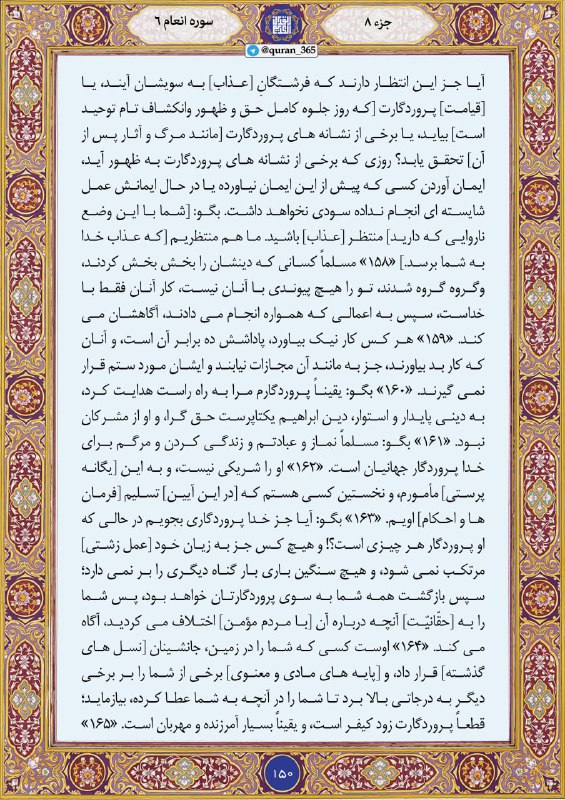 جزء ۸
سوره انعام ۶
@quran_365
آیا جز این انتظار دارند که فرشتگانِ [عذاب] به سویشان آیند، یا
[قیامت] پروردگارت [که روز جلوه کامل حق و ظهور وانکشاف تام توحید
است] بیاید، یا برخی از نشانه های پروردگارت [مانند مرگ و آثار پس از
آن] تحقق یابد؟ روزی که برخی از نشانه های پروردگارت به ظهور آید،
ایمان آوردن کسی که پیش از این ایمان نیاورده یا در حال ایمانش عمل
شایسته ای انجام نداده سودی نخواهد داشت. بگو: [شما با این وضع
ناروایی که دارید] منتظر [عذاب] باشید. ما هم منتظریم [که عذاب خدا
به شما برسد.] «۱۵۸» مسلماً کسانی که دینشان را بخش بخش کردند،
وگروه گروه شدند، تو را هیچ پیوندی با آنان نیست، کار آنان فقط با
خداست، سپس به اعمالی که همواره انجام می دادند، آگاهشان می
کند. «۱۵۹» هر کس کار نیک بیاورد، پاداشش ده برابر آن است، و آنان
که کار بد بیاورند، جز به مانند آن مجازات نیابند و ایشان مورد ستم قرار
نمی گیرند. «۱۶۰» بگو: یقیناً پروردگارم مرا به راه راست هدایت کرد،
به دینی پایدار و استوار، دین ابراهیم یکتاپرست حق گرا، و او از مشرکان
نبود. «۱۶۱» بگو: مسلماً نماز و عبادتم و زندگی کردن و مرگم برای
خدا پروردگار جهانیان است. «۱۶۲» او را شریکی نیست، و به این [یگانه
پرستی] مأمورم، و نخستین کسی هستم که [در این آیین] تسلیم [فرمان
ها و احکام] اویم. «۱۶۳» بگو: آیا جز خدا پروردگاری بجویم در حالی که
او پروردگار هر چیزی است؟! و هیچ کس جز به زیان خود [عمل زشتی]
مرتکب نمی شود، و هیچ سنگین باری بار گناه دیگری را بر نمی دارد؛
سپس بازگشت همه شما به سوی پروردگارتان خواهد بود، پس شما
را به [حقّانیّت] آنچه درباره آن [با مردم مؤمن] اختلاف می کردید، آگاه
می کند. «۱۶۴» اوست کسی که شما را در زمین، جانشینان [نسل های
گذشته] قرار داد، و [پایه های مادی و معنوی] برخی از شما را بر برخی
دیگر به درجاتی بالا برد تا شما را در آنچه به شما عطا کرده، بیازماید؛
قطعاً پروردگارت زود کیفر است، و یقیناً بسیار آمرزنده و مهربان است. «۱۶۵»
۱۵۰